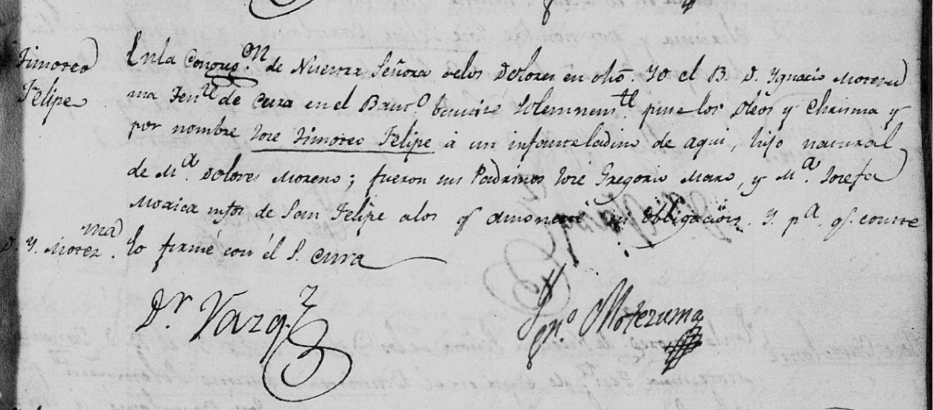 Timoteo
Felipe
En la Congreg.on de Nuestra Señora de los Dolores en oho. Yo el B. D. Ygnacio Motezu
ma Then.te de Cura en el Baut.o bautisé solemnem.te puse los Oleos y Chrisma y
por nombre José Timoteo Felipe á un infante ladino de aqui, hijo natural
de M.a Dolores Moreno; fueron sus Padrinos José Gregorio Maxo, y M.a Josefa
de San Felipe a los q amonesté su obligación. Y p.a q. conste
D. Y. Motez.ma lo firmé con él S. Cura
D.r Vazq.z
Ygn.o Motezuma